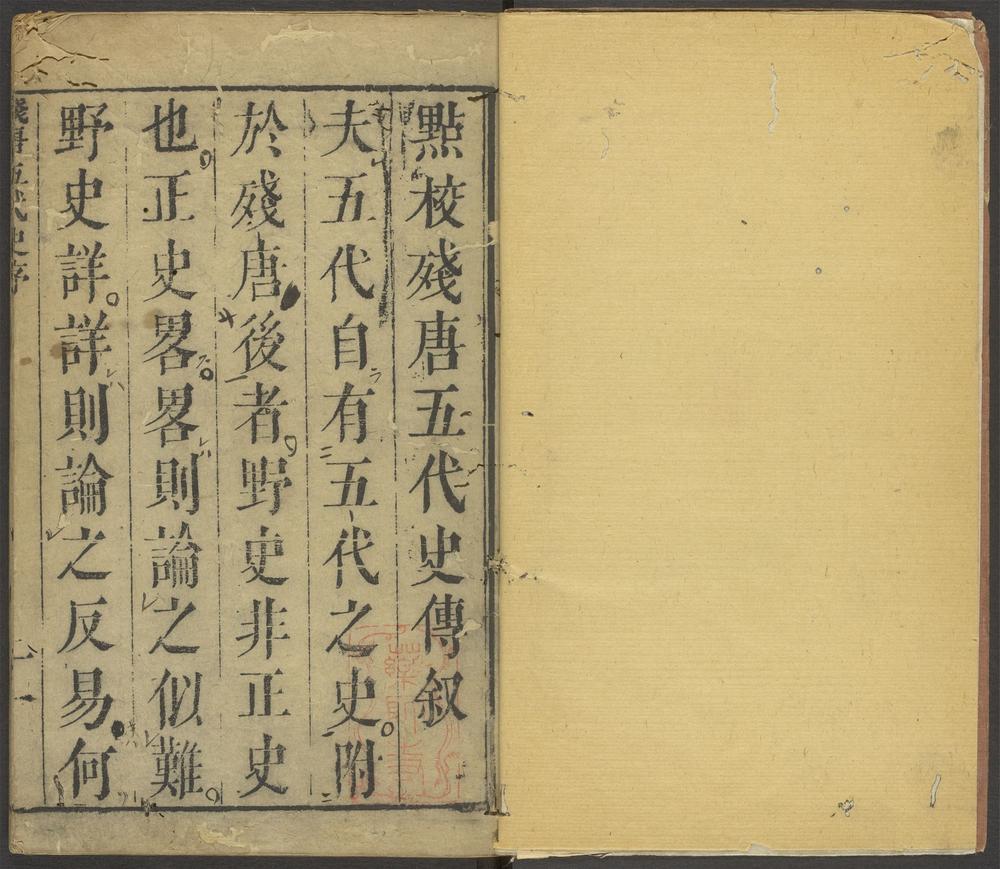 點校殘唐五代史傳叙
夫五代自有五代之史附
於殘唐後者野史非正史
也正史畧畧則論之似難
野史詳詳則論之反易何
殘唐五代史序